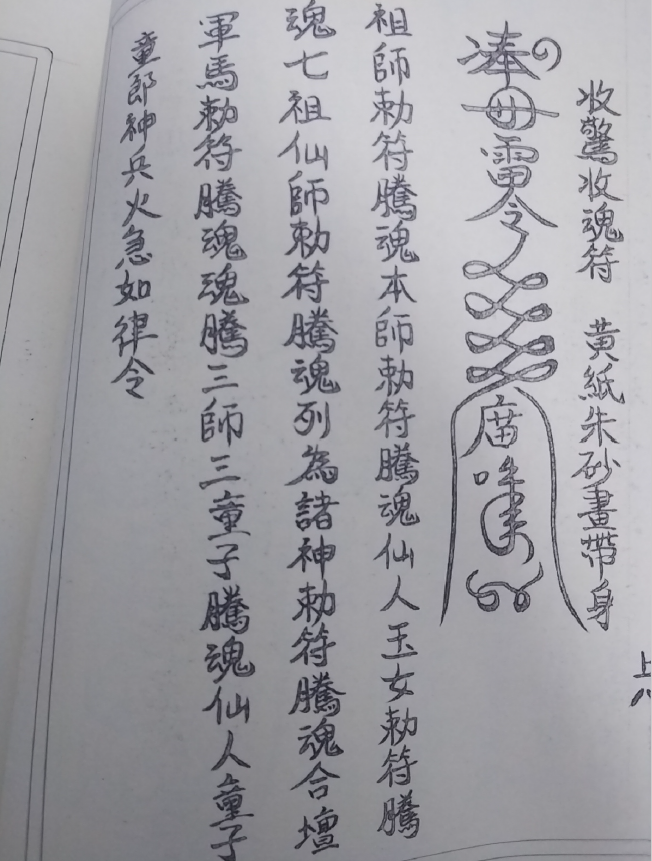 收驚收魂符 黃紙朱砂畫帶身
奉毌雷令
祖師勅符騰魂本師勅符騰魂仙人玉女勅符騰
魂七祖仙師勅符騰魂列為諸神勅符騰魂合壇
軍馬勅符騰魂魂騰三師三童子騰魂仙人童子
童郎神兵火急如律令
上八